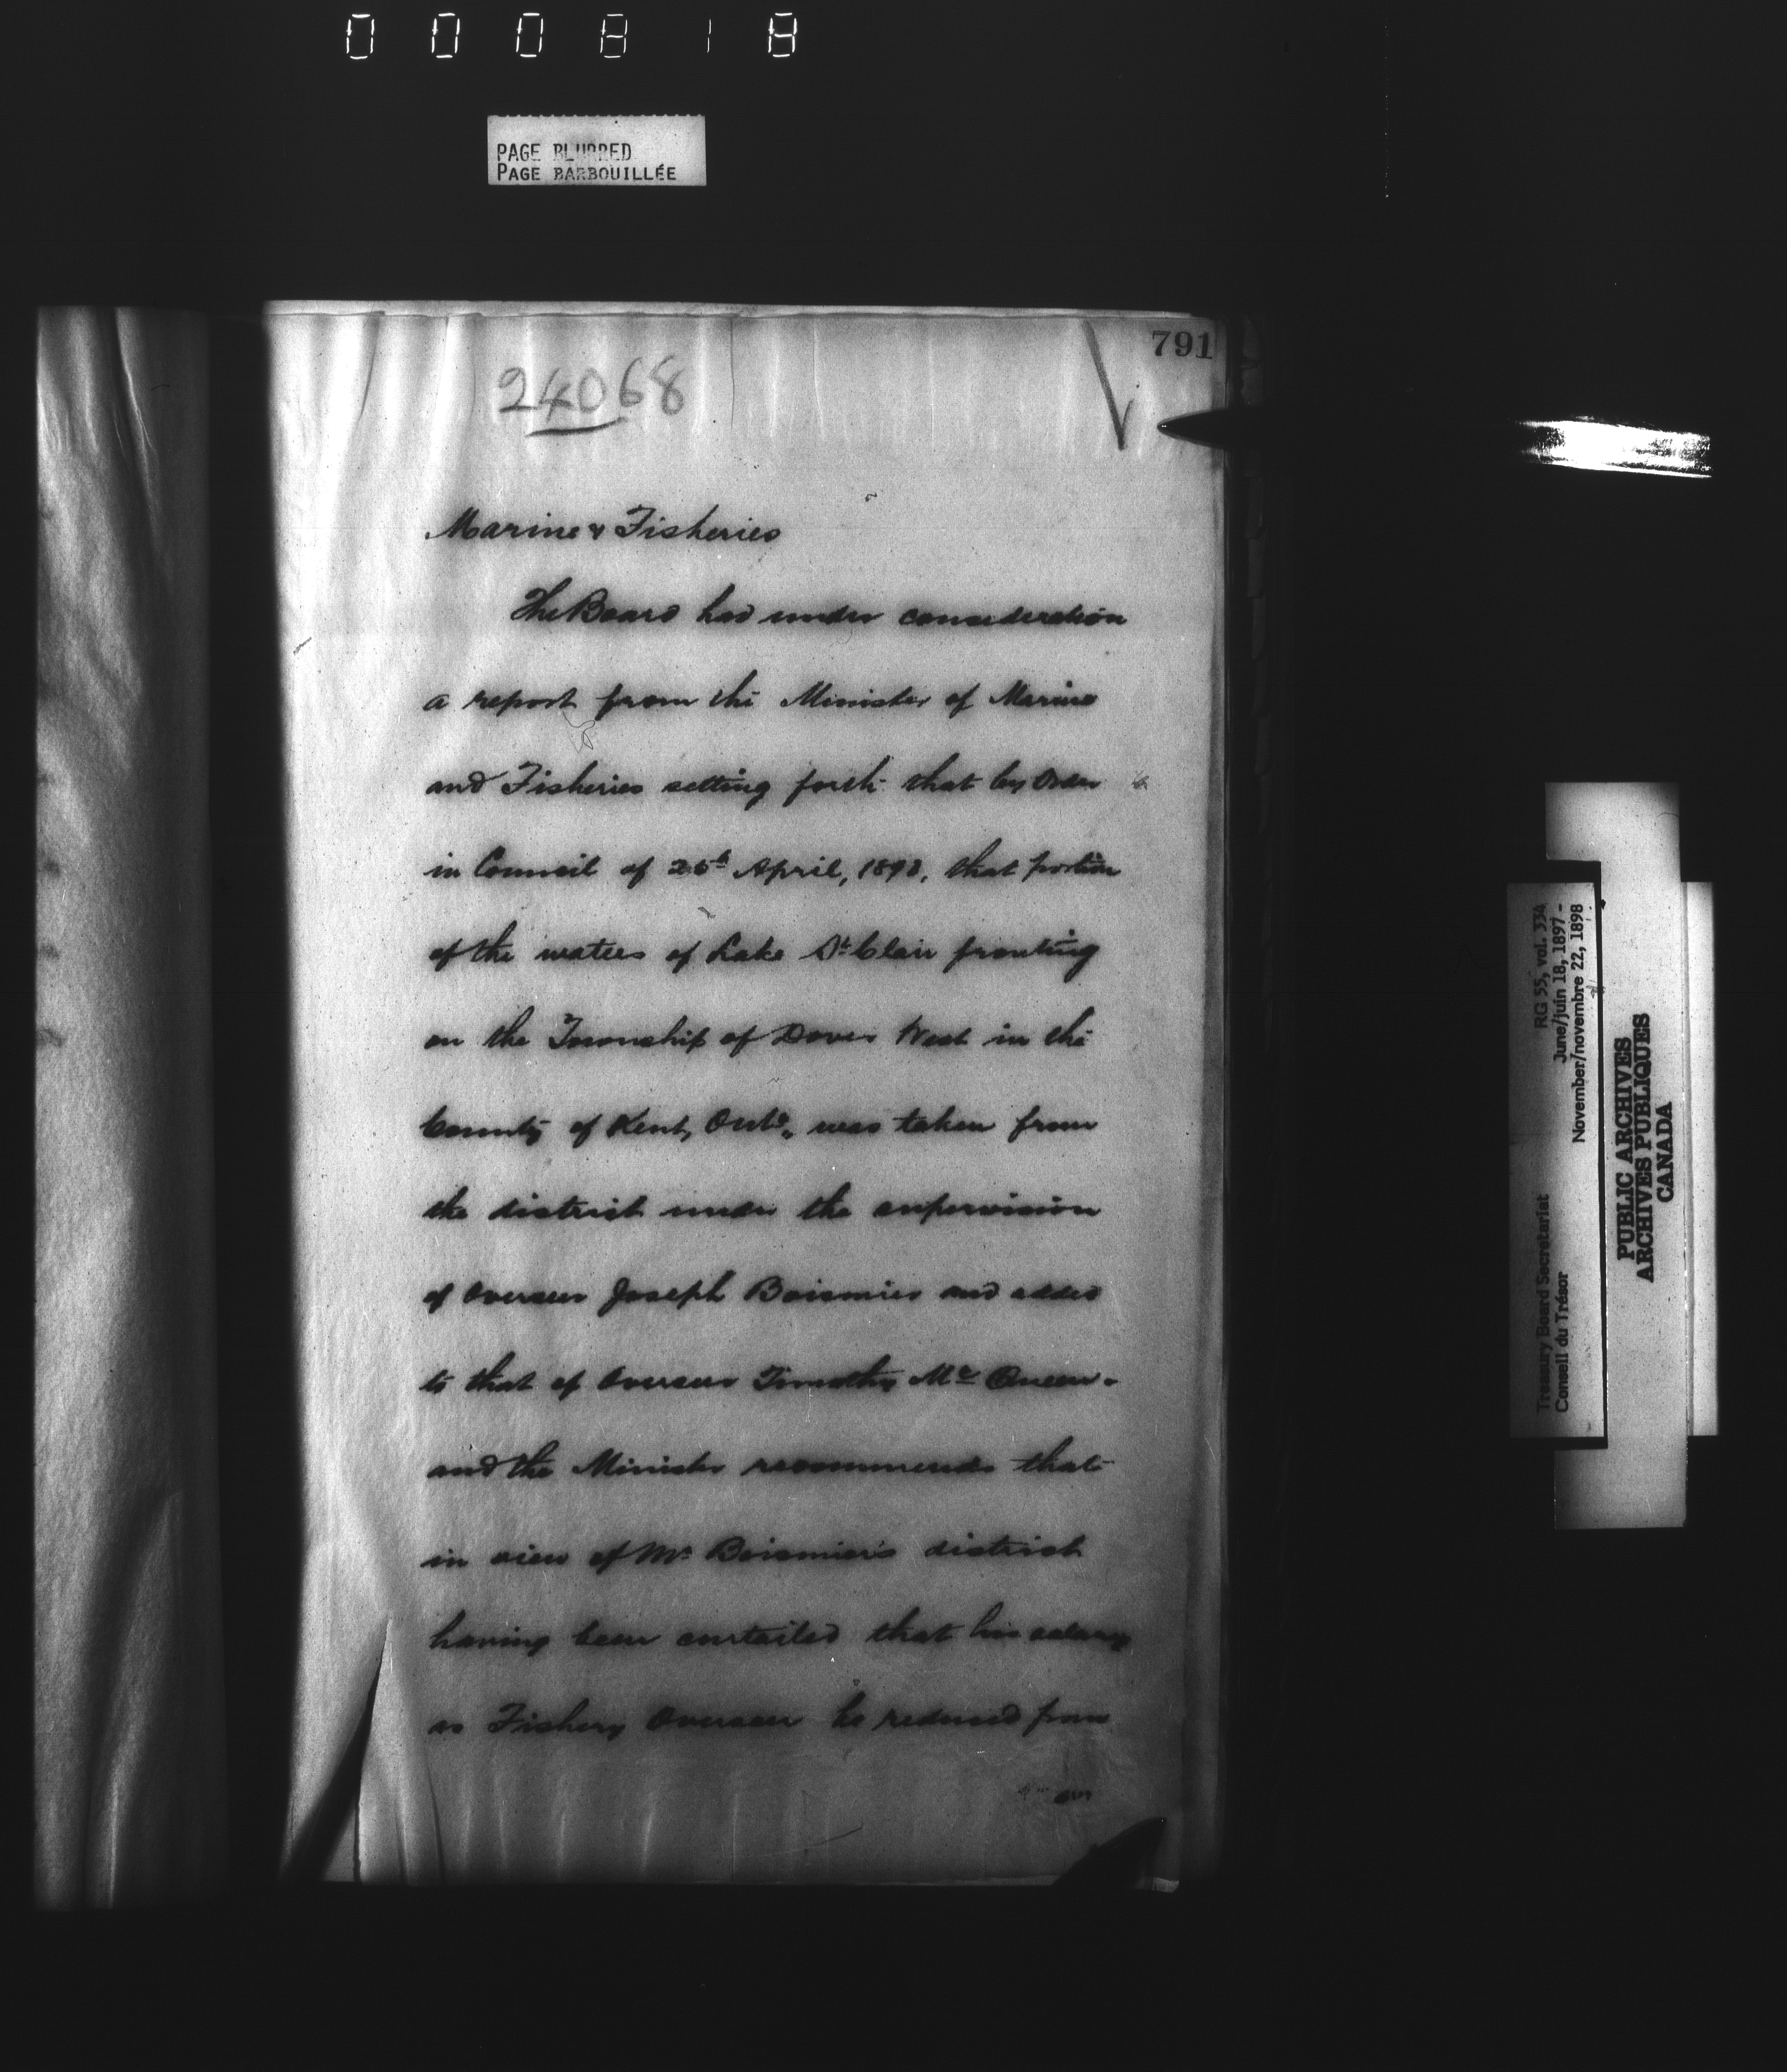 000818
PAGE BLURRED
PAGE BARBOUILLÉE
791
24068
Marine & Fisheries
The Board had under consideration
a report from the Minister of Marine
and Fisheries setting forth that by Order
in Council of April, that portion
of the waters of Lake St Clair fronting
on the Township of Dover West in the
County of Kent, Ont°, was taken from
the district under the supervision
of Overseer Joseph Boismier and added
to that of Overseer Timothy Mc Queen.
and the Minister recommends that
in view of Mr Boismier's district
having been curtailed that his salary
as Fishery Overseer be reduced from
RG 55, vol. 334
June/juin 18, 1897 -
November/novembre 22, 1898
Treasury Board Secretariat
Conseil du Trésor
PUBLIC ARCHIVES
ARCHIVES PUBLIQUES
CANADA